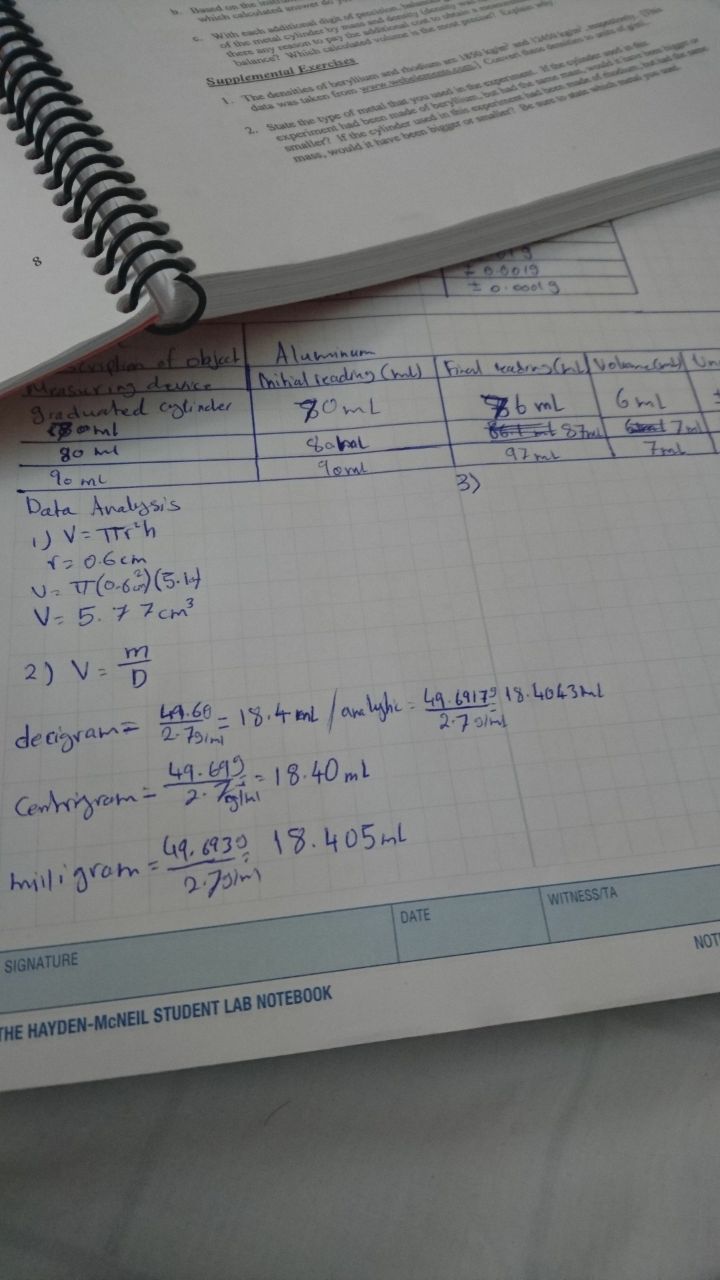 b. Based on the
which calculated answer do
c. With each additional digit of precision,
of the metal cylinder by mass and density (density was
there any reason to pay the additional cost to obtain a
balance? Which calculated volume is the most precise? Explain why
Supplemental Exercises
1. The densities of beryllium and rhodium are 1850 kg/m³ and 12450 kg/m³, respectively. (This
data was taken from www.webelements.com) Convert these densities to units of g/ml.
2. State the type of metal that you used in the experiment. If the cylinder used in the
experiment had been made of beryllium, but had the same mass, would it have been bigger or
smaller? If the cylinder used in this experiment had been made of rhodium, but had the same
mass, would it have been bigger or smaller? Be sure to state which metal you used.
8
± 0.001g
± 0.0001g
description of object Aluminum
Measuring device Initial reading (mL) Final reading (mL) Volume (mL) Un
graduated cylinder
80ml 80mL 86mL 6mL
80 ml 80ml 87ml 7ml
90 ml 90ml 97ml 7ml
Data Analysis 3)
1) V = πr²h
r = 0.6cm
V = π(0.6cm²)(5.1
V = 5.77cm³
2) V = m/D
decigram = 49.6g/2.7g/ml = 18.4 ml / analytic = 49.6917g/2.7g/ml = 18.4043ml
Centrigram = 49.69g/2.7g/ml = 18.40 mL
milligram = 49.693g/2.7g/ml = 18.405mL
SIGNATURE DATE WITNESS/TA
NOT
THE HAYDEN-McNEIL STUDENT LAB NOTEBOOK